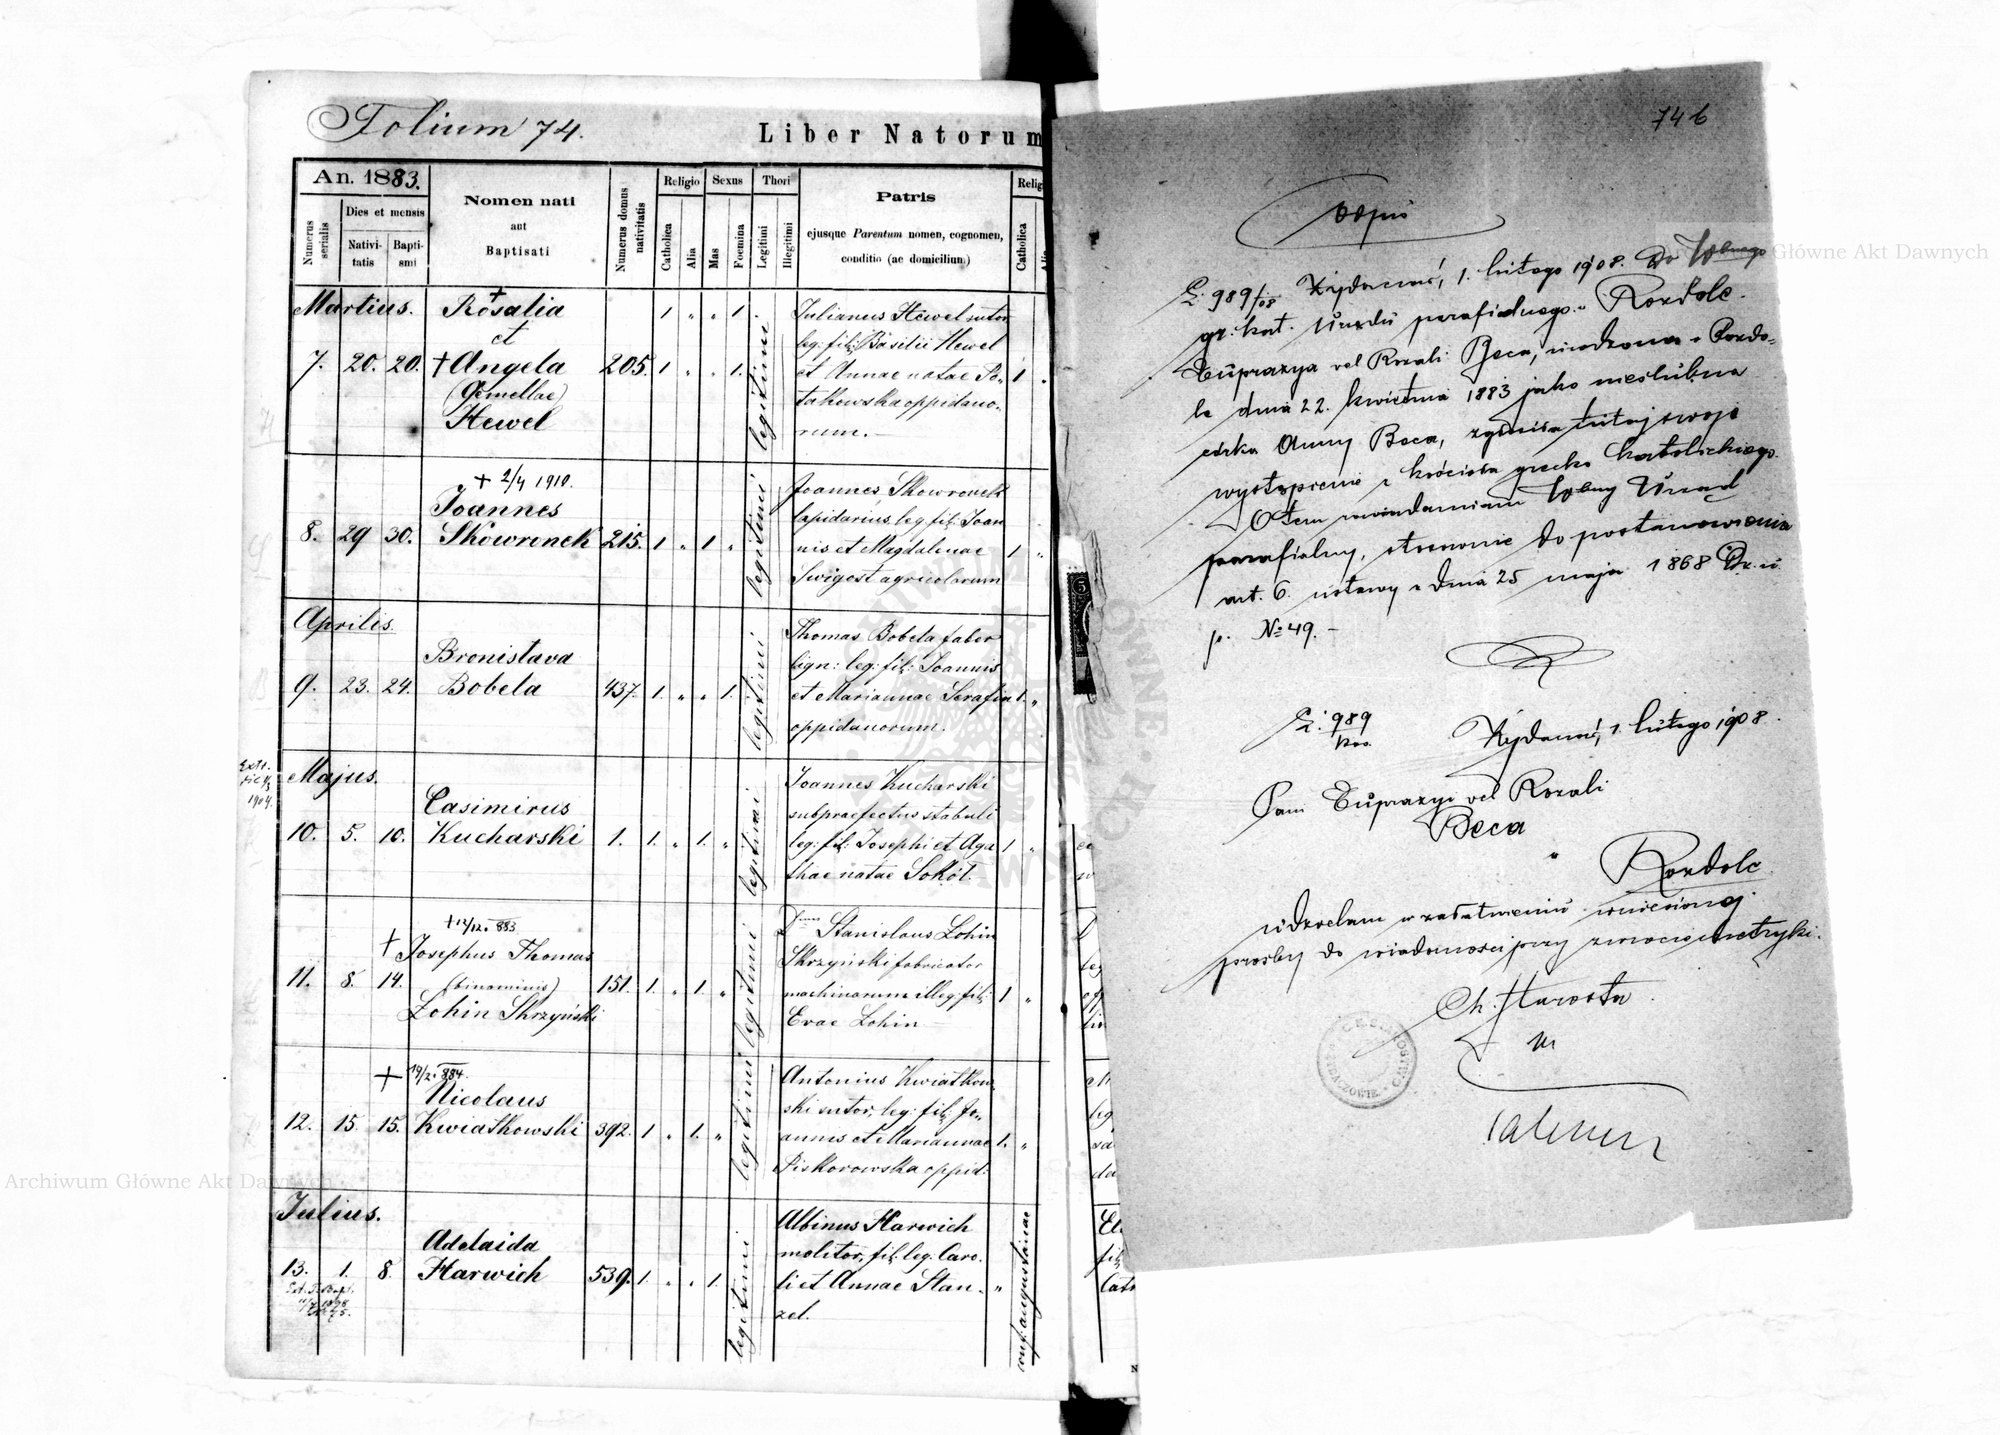 Folium 74.
Liber Natorum
An. 1883.
Numerus serialis
Dies et mensis
Nativitatis
Baptismi
Nomen nati
aut
Baptisati
Numerus domus nativitatis
Religio
Catholica
Alia
Sexus
Mas
Foemina
Thori
Legitimi
Illegitimi
Patris
ejusque Parentum nomen, cognomen,
conditio (ac domicilium)
Relig
Catholica
Martius.
7. 20. 20.
+
Rosalia
et
+ Angela
(Gemellae)
Hewel
205. 1 " " 1.
legitimi
Julianus Hewel sutor
leg: fil: Basilii Hewel
et Annae natae Po-
takowska oppidano-
rum.
1
8. 29 30.
+ 2/4 1910.
Joannes
Skowronek
215. 1 " 1 "
legitimi
Joannes Skowronek
lapidarius, leg. fil: Joan
nis et Magdalenae
Swigost agricolarum
1 "
Aprilis.
9. 23. 24.
Bronislava
Bobela
437. 1. " " 1.
legitimi
Thomas Bobela faber
lign: leg: fil: Joannis
et Mariannae Serafin
oppidanorum.
1. "
Majus.
1904.
10. 5. 10.
Casimirus
Kucharski
1. 1. " 1. "
legitimi
Joannes Kucharski
subpraefectus stabuli
leg: fil: Josephi et Aga
thae natae Sokół.
1 "
11. 8. 14.
+ 12/12. 883
+ Josephus Thomas
(binominis)
Lohin Skrzyński
151. 1. " 1. "
legitimi
Stanislaus Lohin
Skrzyński fabricator
machinarum illeg: fil:
Evae Lohin
1 "
12. 15. 15.
+ 19/2. 884.
Nicolaus
Kwiatkowski
392. 1 " 1. "
legitimus
Antonius Kwiatkow
ski sutor, leg: fil: Jo-
annis et Mariannae
Piskorowska oppid:
1. "
Julius.
13. 1. 8.
Adelaida
Harwich
539. 1. " " 1.
legitimi
Albinus Harwich
molitor, fil: leg: Caro-
li et Annae Stan-
zel.
"
conf. augustanae
74 b
Odpis
L: 989/08 Żydaczów, 1. lutego 1908. Do
gr: kat. Urzędu parafialnego w Rozdole.
Eufrazya vel Rozali Beca, urodzona w Rozdo-
le dnia 22. kwietnia 1883 jako nieślubna
córka Anny Beca, zgłosiła tutaj swoje
wystąpienie z kościoła grecko katolickiego.
O tem zawiadamiam Urząd
parafialny, stosownie do postanowienia
art. 6. ustawy z dnia 25 maja 1868 Dz. u.
p. № 49. -
L: 989 Żydaczów, 1 lutego 1908.
Pani Eufrazyi vel Rozali
Beca
w Rozdole
udzielam w załatwieniu wniesionej
prośby do wiadomości przy zwrocie metryki.
Ck. Starosta
Archiwum Główne Akt Dawnych
Główne Akt Dawnych